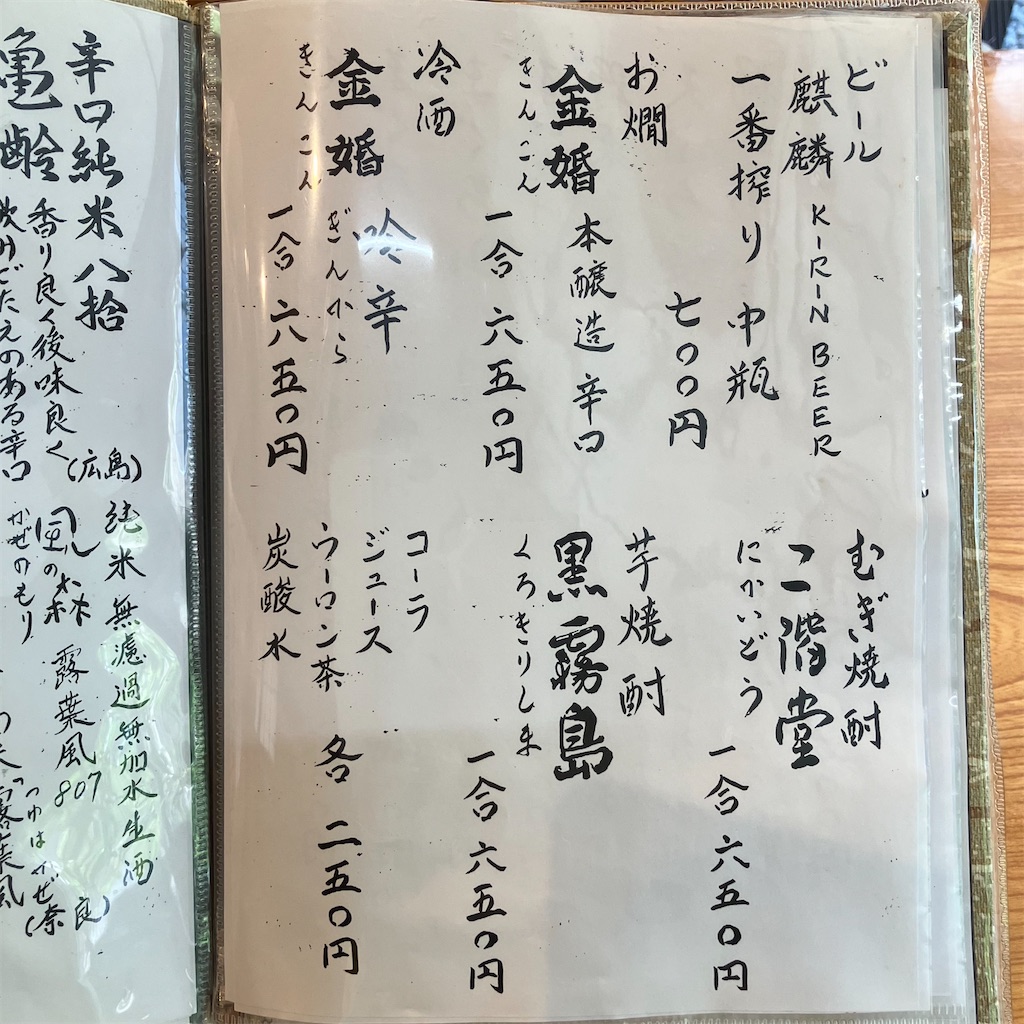 ビール
麒麟 KIRIN BEER
一番搾り 中瓶
七〇〇円
お燗
金婚 本醸造 辛口
きんこん
一合 六五〇円
冷酒
金婚 吟辛
きんこん ぎんから
一合 六五〇円
むぎ焼酎
二階堂
にかいどう
一合 六五〇円
芋焼酎
黒霧島
くろきりしま
一合 六五〇円
コーラ
ジュース
ウーロン茶 各 二五〇円
炭酸水
辛口純米八拾
亀齢 香り良く後味良く (広島)
飲みごたえのある辛口
純米 無濾過無加水生酒
風の森 露葉風807
かぜのもり つゆはかぜ (奈良)